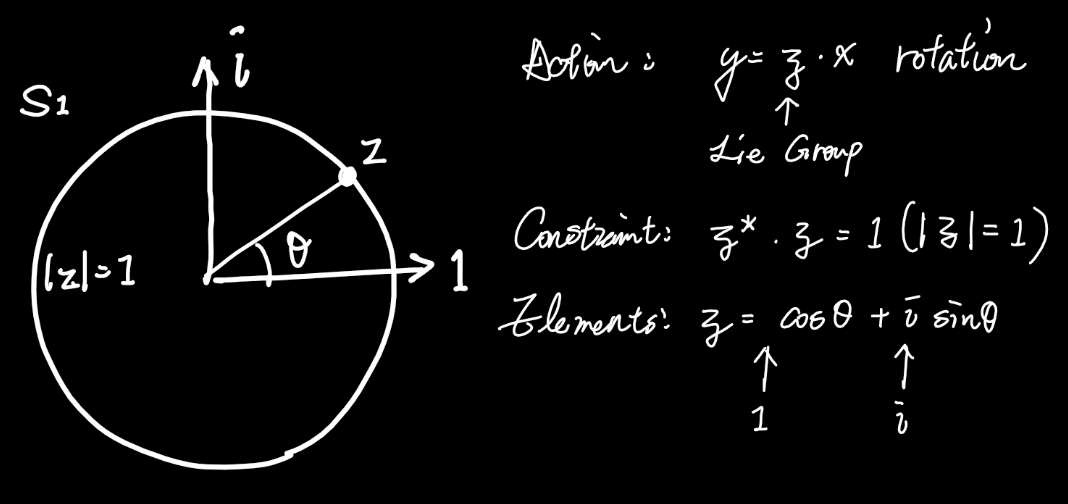 i
S1
z
θ
|z|=1
1
Action: y = z · x rotation
↑
Lie Group
Constraint: z* · z = 1 (|z| = 1)
Elements: z = cosθ + i sinθ
↑ ↑
1 i